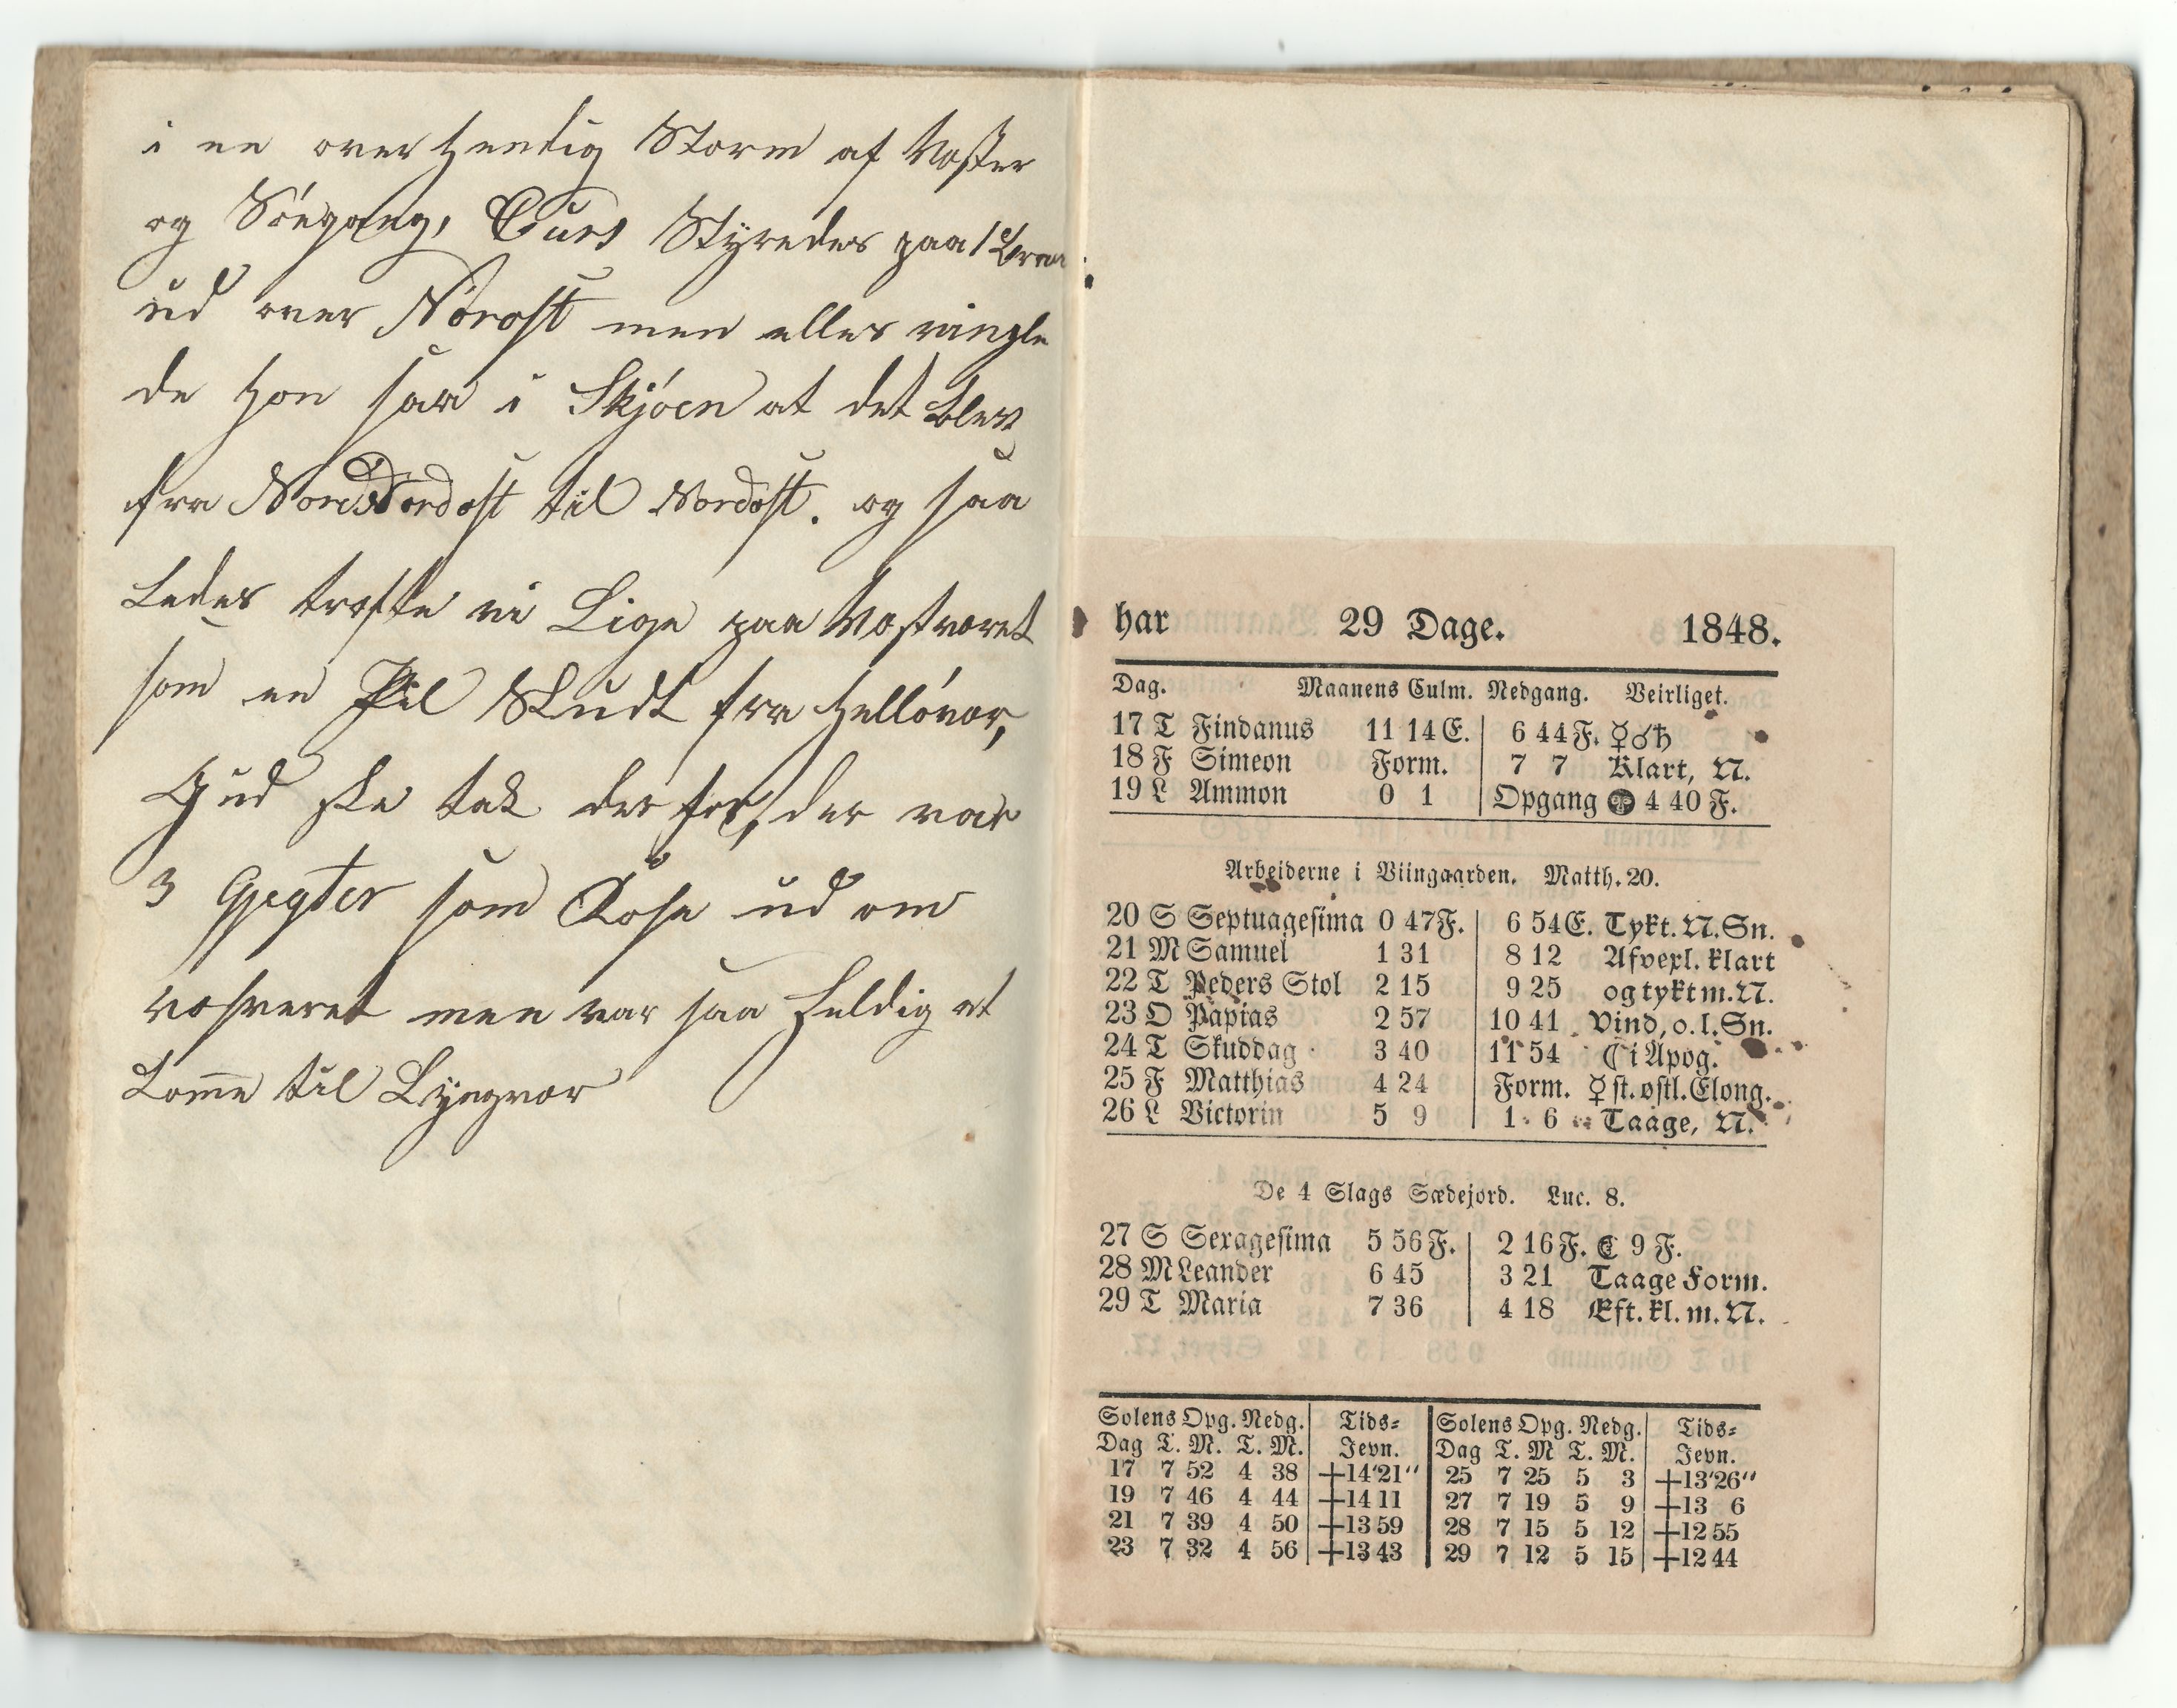 i en over hendig Storm af Vaster
og Söegang, Curs Styredes paa 1
ud over Nörost men elles vingle
de hon saa i Skjöen at det blev
fra Nord Nordost til Nordost. og saa
ledes trafte vi Lige paa Vastværet
som en Pil Skudt fra Hellövar,
Gud ske tak der for, der var
3 Gjegter som Lose ud om
vasværet men var saa heldig at
kom̅e til Lyngvær
har 29 Dage. 1848.
Dag. Maanens Culm. Nedgang. Veirliget.
17 T Findanus 11 14 E. 6 44 F. ☿☌♄
18 F Simeon Form. 7 7 Klart, N.
19 L Ammon 0 1 Opgang 4 40 F.
Arbeiderne i Viingaarden. Matth. 20.
20 S Septuagesima 0 47 F. 6 54 E. Tykt. N. Sn.
21 M Samuel 1 31 8 12 Afvexl. klart
22 T Peders Stol 2 15 9 25 og tykt m. N.
23 O Papias 2 57 10 41 Vind, o. l. Sn.
24 T Skuddag 3 40 11 54 ☾ i Apog.
25 F Matthias 4 24 Form. ☿ st. østl. Elong.
26 L Victorin 5 9 1 6 Taage, N.
De 4 Slags Sædejord. Luc. 8.
27 S Sexagesima 5 56 F. 2 16 F. ☾ 9 F.
28 M Leander 6 45 3 21 Taage Form.
29 T Maria 7 36 4 18 Eft. kl. m. N.
Solens Opg. Nedg. Tids= Solens Opg. Nedg. Tids=
Dag T. M. T. M. Jevn. Dag T. M T. M. Jevn.
17 7 52 4 38 +14'21" 25 7 25 5 3 +13'26"
19 7 46 4 44 +14 11 27 7 19 5 9 +13 6
21 7 39 4 50 +13 59 28 7 15 5 12 +12 55
23 7 32 4 56 +13 43 29 7 12 5 15 +12 44